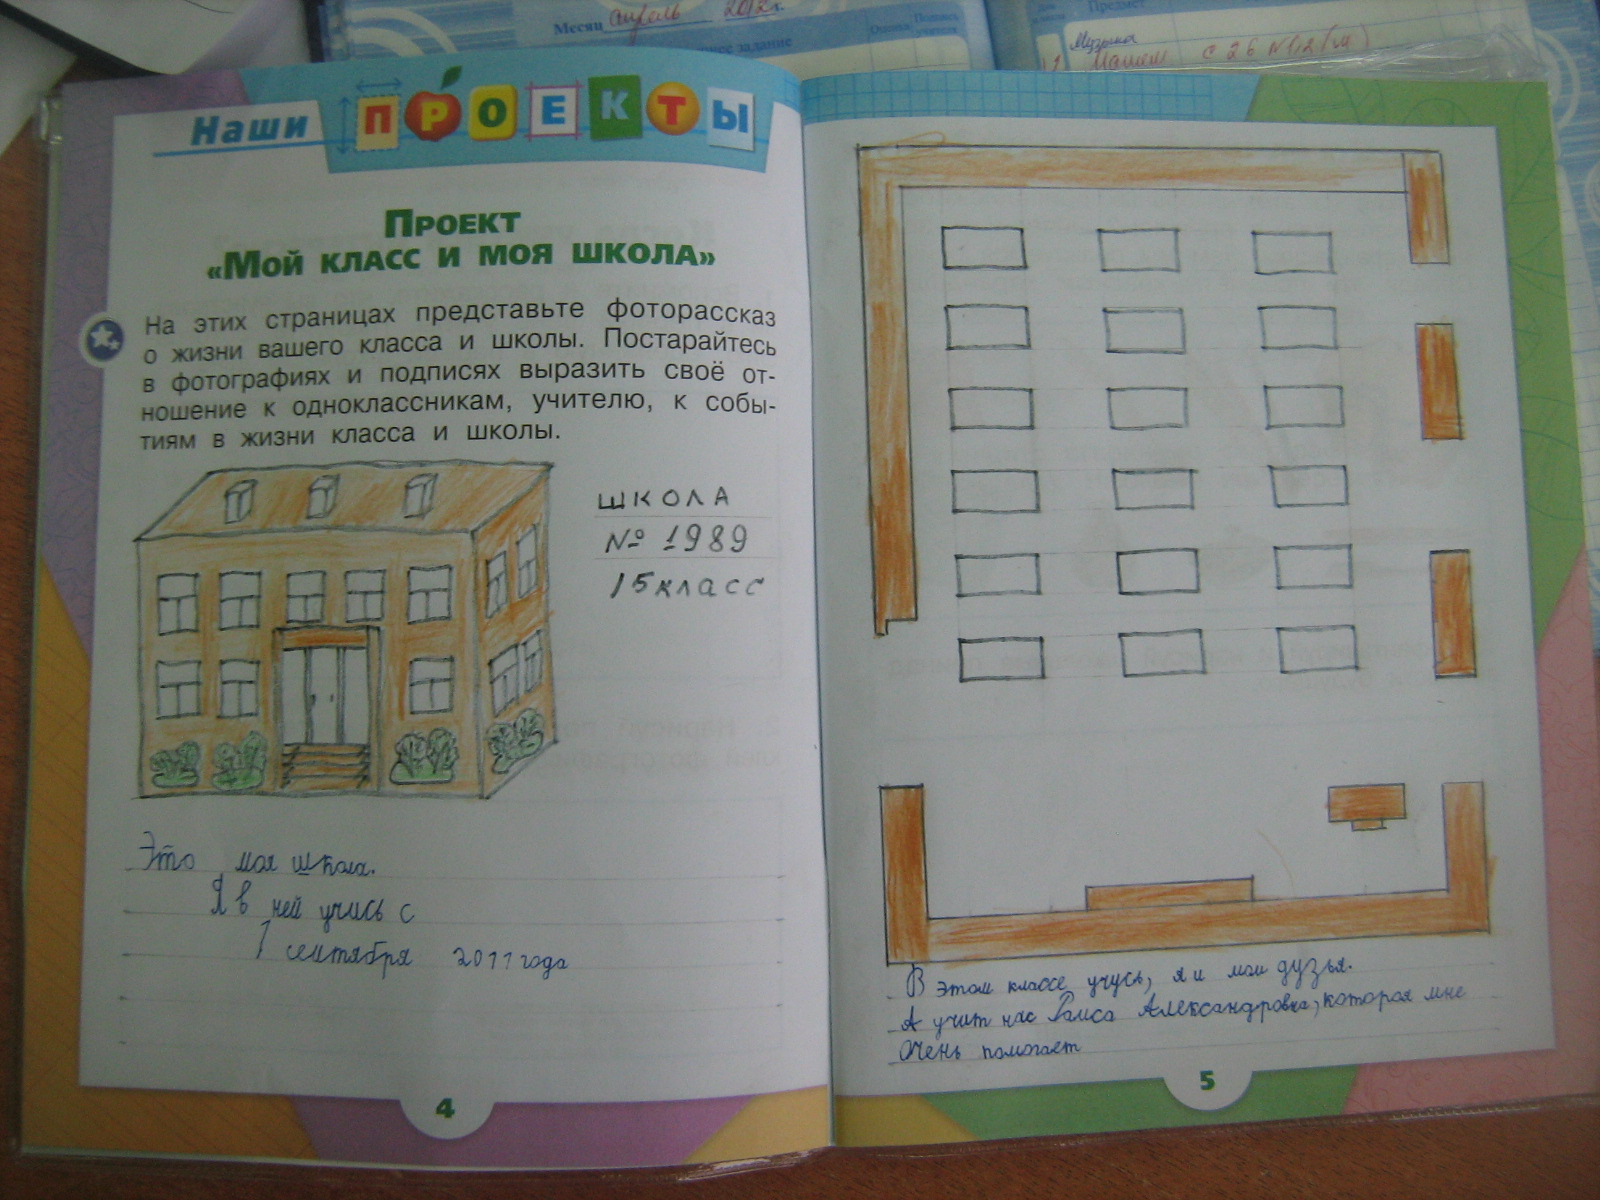 Месяц апрель 2012 г.
нее задание
Оценка
Подпись учителя
Предмет
Музыка
с 26 N
Наши ПРОЕКТЫ
ПРОЕКТ
«МОЙ КЛАСС И МОЯ ШКОЛА»
На этих страницах представьте фоторассказ
о жизни вашего класса и школы. Постарайтесь
в фотографиях и подписях выразить своё от-
ношение к одноклассникам, учителю, к собы-
тиям в жизни класса и школы.
ШКОЛА
№ 1989
1Б класс
Это моя школа.
Я в ней учусь с
1 сентября 2011 года
4
В этом классе учусь, я и мои друзья.
А учит нас Раиса Александровна, которая мне
очень помогает
5